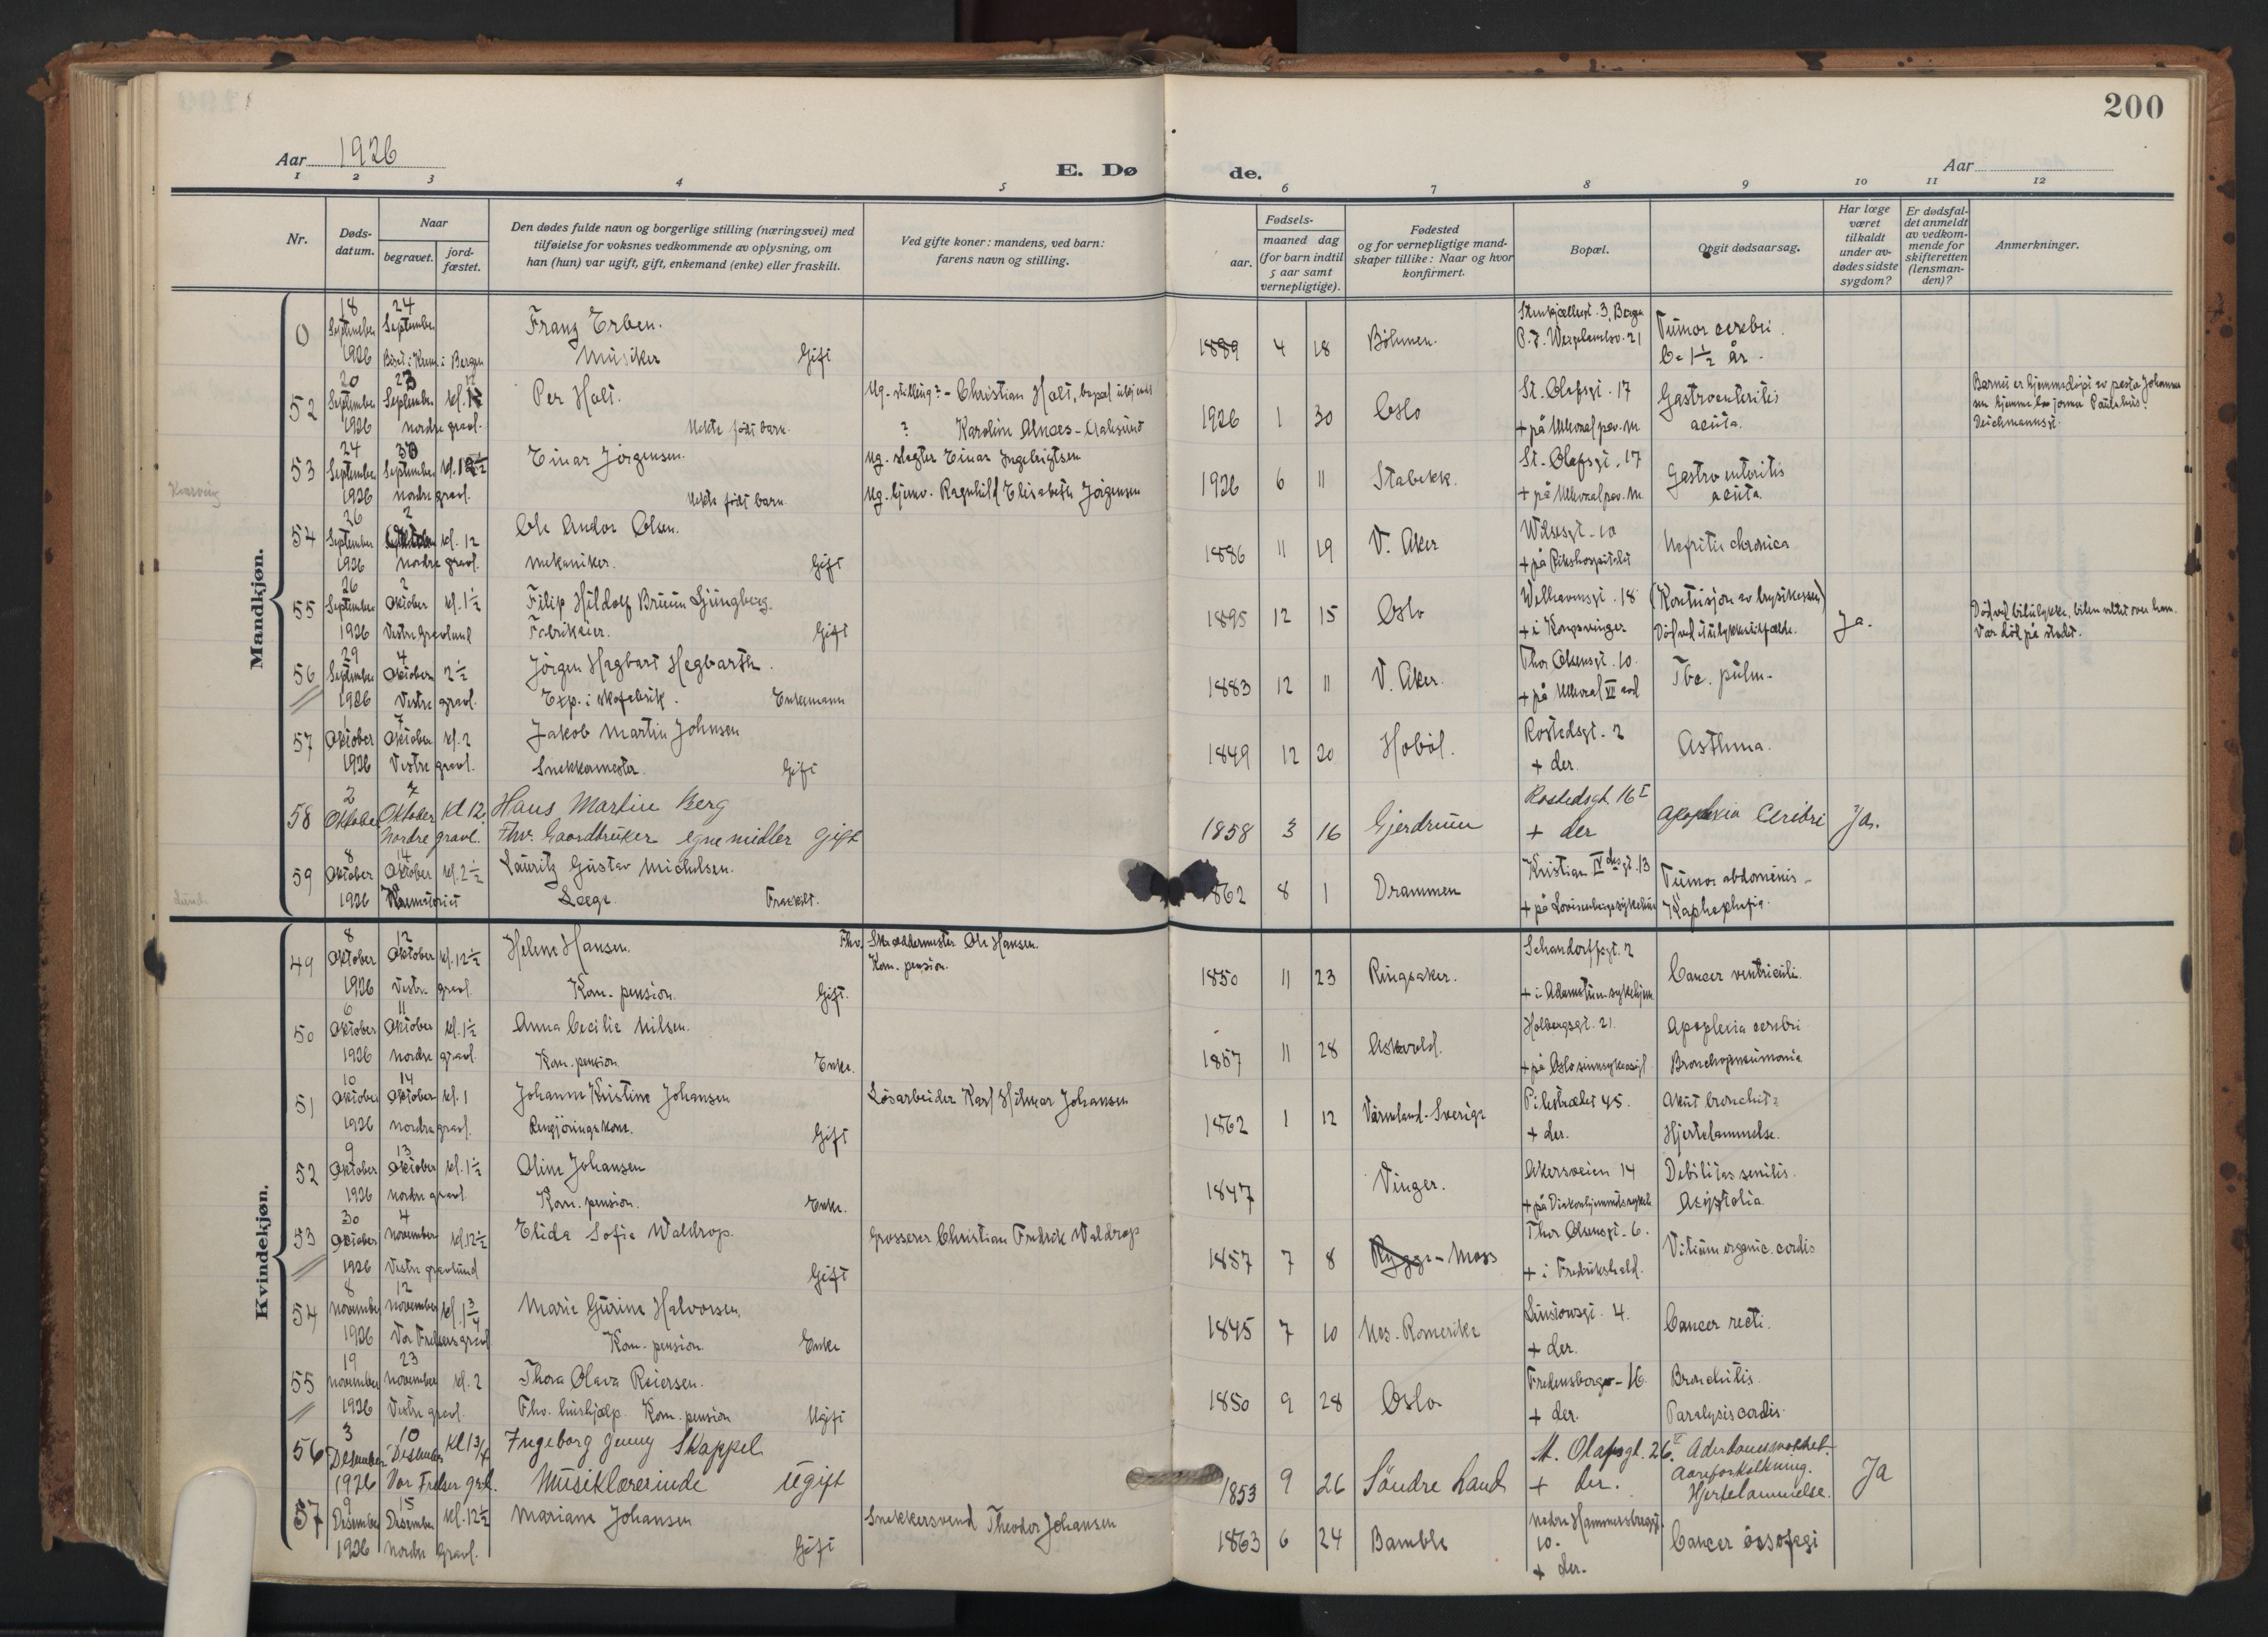 200
Aar 1926
E. Dø
de.
Aar
1 2 3 4 5 6 7 8 9 10 11 12
Nr.
Døds-
datum.
Naar
begravet.
jord-
fæstet.
Den dødes fulde navn og borgerlige stilling (næringsvei) med
tilføielse for voksnes vedkommende av oplysning, om
han (hun) var ugift, gift, enkemand (enke) eller fraskilt.
Ved gifte koner: mandens, ved barn:
farens navn og stilling.
Fødsels-
aar.
maaned dag
(for barn indtil
5 aar samt
vernepligtige).
Fødested
og for vernepligtige mand-
skaper tillike: Naar og hvor
konfirmert.
Bopæl.
Opgit dødsaarsag.
Har læge
været
tilkaldt
under av-
dødes sidste
sygdom?
Er dødsfal-
det anmeldt
av vedkom-
mende for
skifteretten
(lensman-
den)?
Anmerkninger.
Mandkjøn.
0 18 September 1926 24 September i Bergen
Franz Erben.
Musiker Gift
1889 4 18 Bøhmen. 3, Bergen
21
Tumor cerebri.
1½ år.
52 20 September 1926 23 September kl. 12 nordre gravl.
Per Holt.
Uekte født barn.
Ug. stilling? - Christian Holt, bopæl ubekjendt
? Karoline
1926 1 30 Oslo
St. Olafsgt. 17
+ på Ullevaal
Gastroenteritis
acuta.
Barnet er hjemmedøpt av
53 24 September 1926 30 September nordre gravl.
Einar Jørgensen.
Uekte født barn.
Ug. slagter Einar Ingebrigtsen
Ug. tjener. Ragnhild Elisabeth Jørgensen
1926 6 11 Stabekk.
St. Olafsgt. 17
+ på Ullevaal
Gastroenteritis
acuta
54 26 September 1926 2 Oktober kl. 12 nordre gravl.
Ole Andor Olsen.
mekaniker. Gift
1886 11 19 V. Aker
Wilsesgt. 10
+ på Rikshospitalet
Nefritis chronica
55 26 September 1926 2 Oktober kl. 1½ Vestre Gravlund
Filip Hildolf Bruun Ljungberg.
Fabrikeier. Gift
1895 12 15 Oslo
Welhavensgt. 18
+ i Kongsvinger
(Kontusjon av brystkassen)
Død ved ulykkestilfælde.
Ja.
Død ved bilulykke, bilen veltet over ham.
Var død på stedet.
56 29 September 1926 4 Oktober 2½ Vestre gravl.
Jørgen Hagbart Hegbarth.
Exp. i skofabrik. Enkemann
1883 12 11 V. Aker.
Thor Olsensgt. 10.
+ på Ullevaal VI avd
Tbc. pulm.
57 1 Oktober 1926 7 Oktober kl. 2 Vestre gravl.
Jakob Martin Johnsen
Snekkermester. Gift
1849 12 20 Hobøl.
Rostedsgt. 2
+ der.
Asthma.
58 2 Oktober 7 Oktober Kl 12. Nordre gravl.
Hans Martin Berg
Fhv. Gaardbruker egne midler gift
1858 3 16 Gjerdrum
Rostedsgt. 16 I
+ der
apoplexia Cerebri
Ja.
59 8 Oktober 1926 14 Oktober kl. 2½ Krematoriet
Lauritz Gustav Michelsen.
Læge. Fraskilt.
1862 8 1 Drammen
Kristian IV des gt. 13
+ på Lovisenbergs sykehus
Tumor abdominis -
Kvindekjøn.
49 8 Oktober 1926 12 Oktober kl. 12½ Vestre gravl.
Helene Hansen.
Kom. pension. Gift.
Fhv. Skræddermester Ole Hansen.
Kom. pension.
1850 11 23 Ringsaker.
Schandorffsgt. 2
+ i Adamstuen sykehjem
Cancer ventriculi.
50 6 Oktober 1926 11 Oktober kl. 1½ Nordre gravl.
Anna Cecilie Nilsen.
Kom. pension Enke.
1857 11 28 Askvold.
Holbergsgt. 21.
+ på Oslo sinnsykeasyl
Apoplexia cerebri
Bronchopneumonia
51 10 Oktober 1926 14 Oktober kl. 1 nordre gravl.
Johanne Kristine Johansen
Rengjøringskone. Gift
Løsarbeider Karl Hilmar Johansen
1862 1 12 Värmland - Sverige
Pilestrædet 45.
+ der.
Akut bronchit
Hjertelammelse.
52 9 Oktober 1926 13 Oktober kl. 1½ nordre gravl.
Oline Johansen
Kom. pension. Enke.
1847 Vinger.
Akersveien 14
+ på Diakonhjemmets sykeh.
Debilitas senilis.
Asystolia.
53 30 Oktober 1926 4 November kl. 12½ Vestre gravlund
Elida Sofie Waldrop.
Gift
Grosserer Christian Fredrik Waldrop
1857 7 8 Rygge - Moss
Thor Olsensgt. 6.
+ i Fredrikshald.
Vitium organic. cordis
54 8 November 1926 12 November kl. 1¾ Vor Frelsers gravl
Marie Gurine Halvorsen.
Kom. pension. Enke
1845 7 10 Nes - Romerike
4.
+ der.
Cancer recti.
55 19 November 1926 23 November kl. 2 Vestre gravl.
Thora Olava Reiersen.
Fhv. hushjælp. Kom. pension Ugift
1850 9 28 Oslo
16
+ der.
Bronchitis.
Paralysis cordis.
56 3 Desember 1926 10 Desember kl 1 3/4 Vor Frelser grl.
Ingeborg Jenny Skappel
Musiklærerinde Ugift
1853 9 26 Søndre Land
St. Olafsgt. 26.
+ der.
Aareforkalkning.
Hjertelammelse.
Ja
57 9 Desember 1926 15 Desember kl. 12½ nordre Gravl.
Mariane Johansen
Gift
Snekkersvend Theodor Johansen
1863 6 24 Bamble
10.
+ der.
Cancer øsofagi